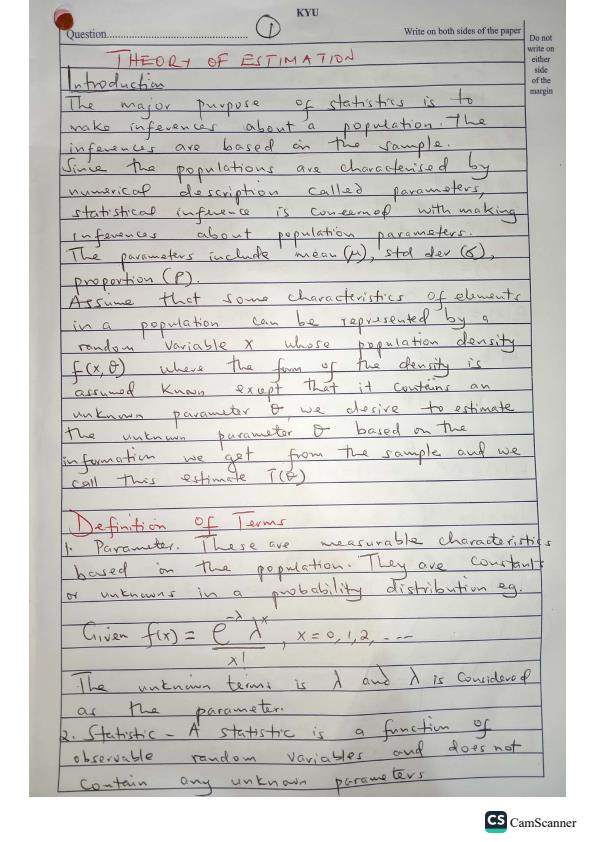 KYU
Question.............................................. 1 Write on both sides of the paper
Do not
write on
either
side
of the
margin
THEORY OF ESTIMATION
Introduction
The major purpose of statistics is to
make inferences about a population. The
inferences are based on the sample.
Since the populations are characterised by
numerical description called parameters,
statistical inference is concerned with making
inferences about population parameters.
The parameters include mean (μ), std dev (σ),
proportion (P).
Assume that some characteristics of elements
in a population can be represented by a
random variable X whose population density
f(x, θ) where the form of the density is
assumed known except that it contains an
unknown parameter θ, we desire to estimate
the unknown parameter θ based on the
information we get from the sample and we
call this estimate T(θ)
Definition of Terms
1. Parameter. These are measurable characteristics
based on the population. They are constants
or unknowns in a probability distribution eg.
Given f(x) = e^-λ λ^x / x! , x = 0, 1, 2, ---
The unknown terms is λ and λ is considered
as the parameter.
2. Statistic - A statistic is a function of
observable random variables and does not
contain any unknown parameters
CS CamScanner